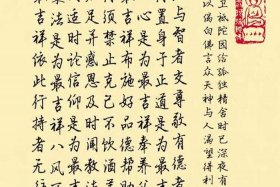 卫祇陀园给孤独精舍时已深夜有
以偈白佛言众天神与人渴望得利
与智者交尊敬有德者
置身于正道是为最
心是为最吉祥奉养父
最吉祥布施好品德帮
须禁止克己不饮酒美
足并感恩及时闻教法
适时论信仰是为最吉
法是为最吉祥八风不
吉祥依此行持者无往